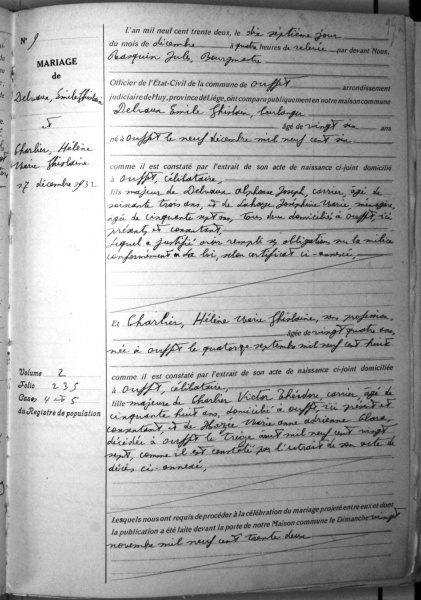 N° 9
MARIAGE
de
Delvaux, Emile Ghislain
et
Charlier, Hélène
Marie Ghislaine
17 décembre 1932
L'an mil neuf cent trente deux, le dix septième jour
du mois de décembre à quatre heures de relevée par devant Nous,
Jule, Bourgmestre
Officier de l'État-Civil de la commune de Ouffet arrondissement
judiciaire de Huy, province de Liége, ont comparu publiquement en notre maison commune
Delvaux Emile Ghislain,
âgé de vingt six ans
né à Ouffet le neuf décembre mil neuf cent six
comme il est constaté par l'extrait de son acte de naissance ci-joint domicilié
à Ouffet, célibataire,
fils majeur de Delvaux Alphonse Joseph, carrier, âgé de
soixante trois ans, et de Lahaye Joséphine Marie, ménagère,
agée de cinquante sept ans, tous deux domiciliés à Ouffet, ici
présents et consentant,
Lequel a justifié avoir rempli ses obligations sur la milice
conformément à la loi, selon certificat ci-annexé,
Et Charlier, Hélène Marie Ghislaine, sans profession,
âgée de vingt quatre ans,
née à Ouffet le quatorze septembre mil neuf cent huit
comme il est constaté par l'extrait de son acte de naissance ci-joint domiciliée
à Ouffet, célibataire,
fille majeure de Charlier Victor Théodore, carrier, âgé de
cinquante huit ans, domicilié à Ouffet, ici présent et
consentant, et de Marie Anne Adrienne Clara,
décédée à Ouffet le treize août mil neuf cent vingt
sept, comme il est constaté par l'extrait de son acte de
décès ci-annexé,
Volume 2
Folio 235
Cases 4 et 5
du Registre de population
Lesquels nous ont requis de procéder à la célébration du mariage projeté entre eux et dont
la publication a été faite devant la porte de notre Maison commune le Dimanche vingt
novembre mil neuf cent trente deux